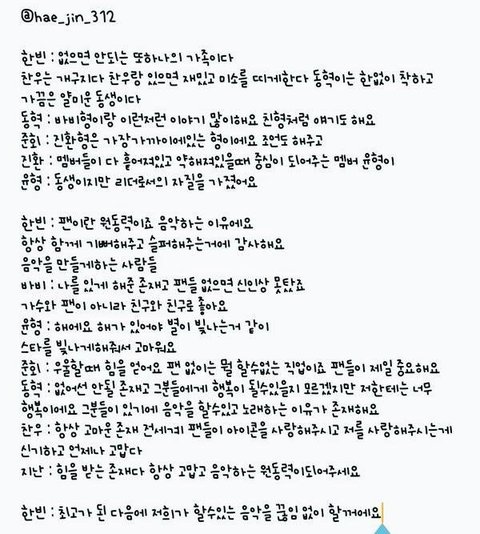 @hae_jin_312
한빈 : 없으면 안되는 또하나의 가족이다
찬우는 개구지다 찬우랑 있으면 재밌고 미소를 띠게한다 동혁이는 한없이 착하고
가끔은 얄미운 동생이다
동혁 : 바비형이랑 이런저런 이야기 많이해요 친형처럼 얘기도 해요
준회 : 진환형은 가장가까이에있는 형이에요 조언도 해주고
진환 : 멤버들이 다 흩어져있고 약해져있을때 중심이 되어주는 멤버 윤형이
윤형 : 동생이지만 리더로서의 자질을 가졌어요
한빈 : 팬이란 원동력이죠 음악하는 이유에요
항상 함께 기뻐해주고 슬퍼해주는거에 감사해요
음악을 만들게하는 사람들
바비 : 나를 있게 해준 존재고 팬들 없으면 신인상 못탔죠
가수와 팬이 아니라 친구와 친구로 좋아요
윤형 : 해에요 해가 있어야 별이 빛나는거 같이
스타를 빛나게해줘서 고마워요
준회 : 우울할때 힘을 얻어요 팬 없이는 뭘 할수없는 직업이죠 팬들이 제일 중요해요
동혁 : 없어선 안될 존재고 그분들에게 행복이 될수있을지 모르겠지만 저한테는 너무
행복이에요 그분들이 있기에 음악을 할수있고 노래하는 이유가 존재해요
찬우 : 항상 고마운 존재 전세계 팬들이 아이콘을 사랑해주시고 저를 사랑해주시는게
신기하고 언제나 고맙다
지난 : 힘을 받는 존재다 항상 고맙고 음악하는 원동력이되어주세요
한빈 : 최고가 된 다음에 저희가 할수있는 음악을 끊임 없이 할꺼에요